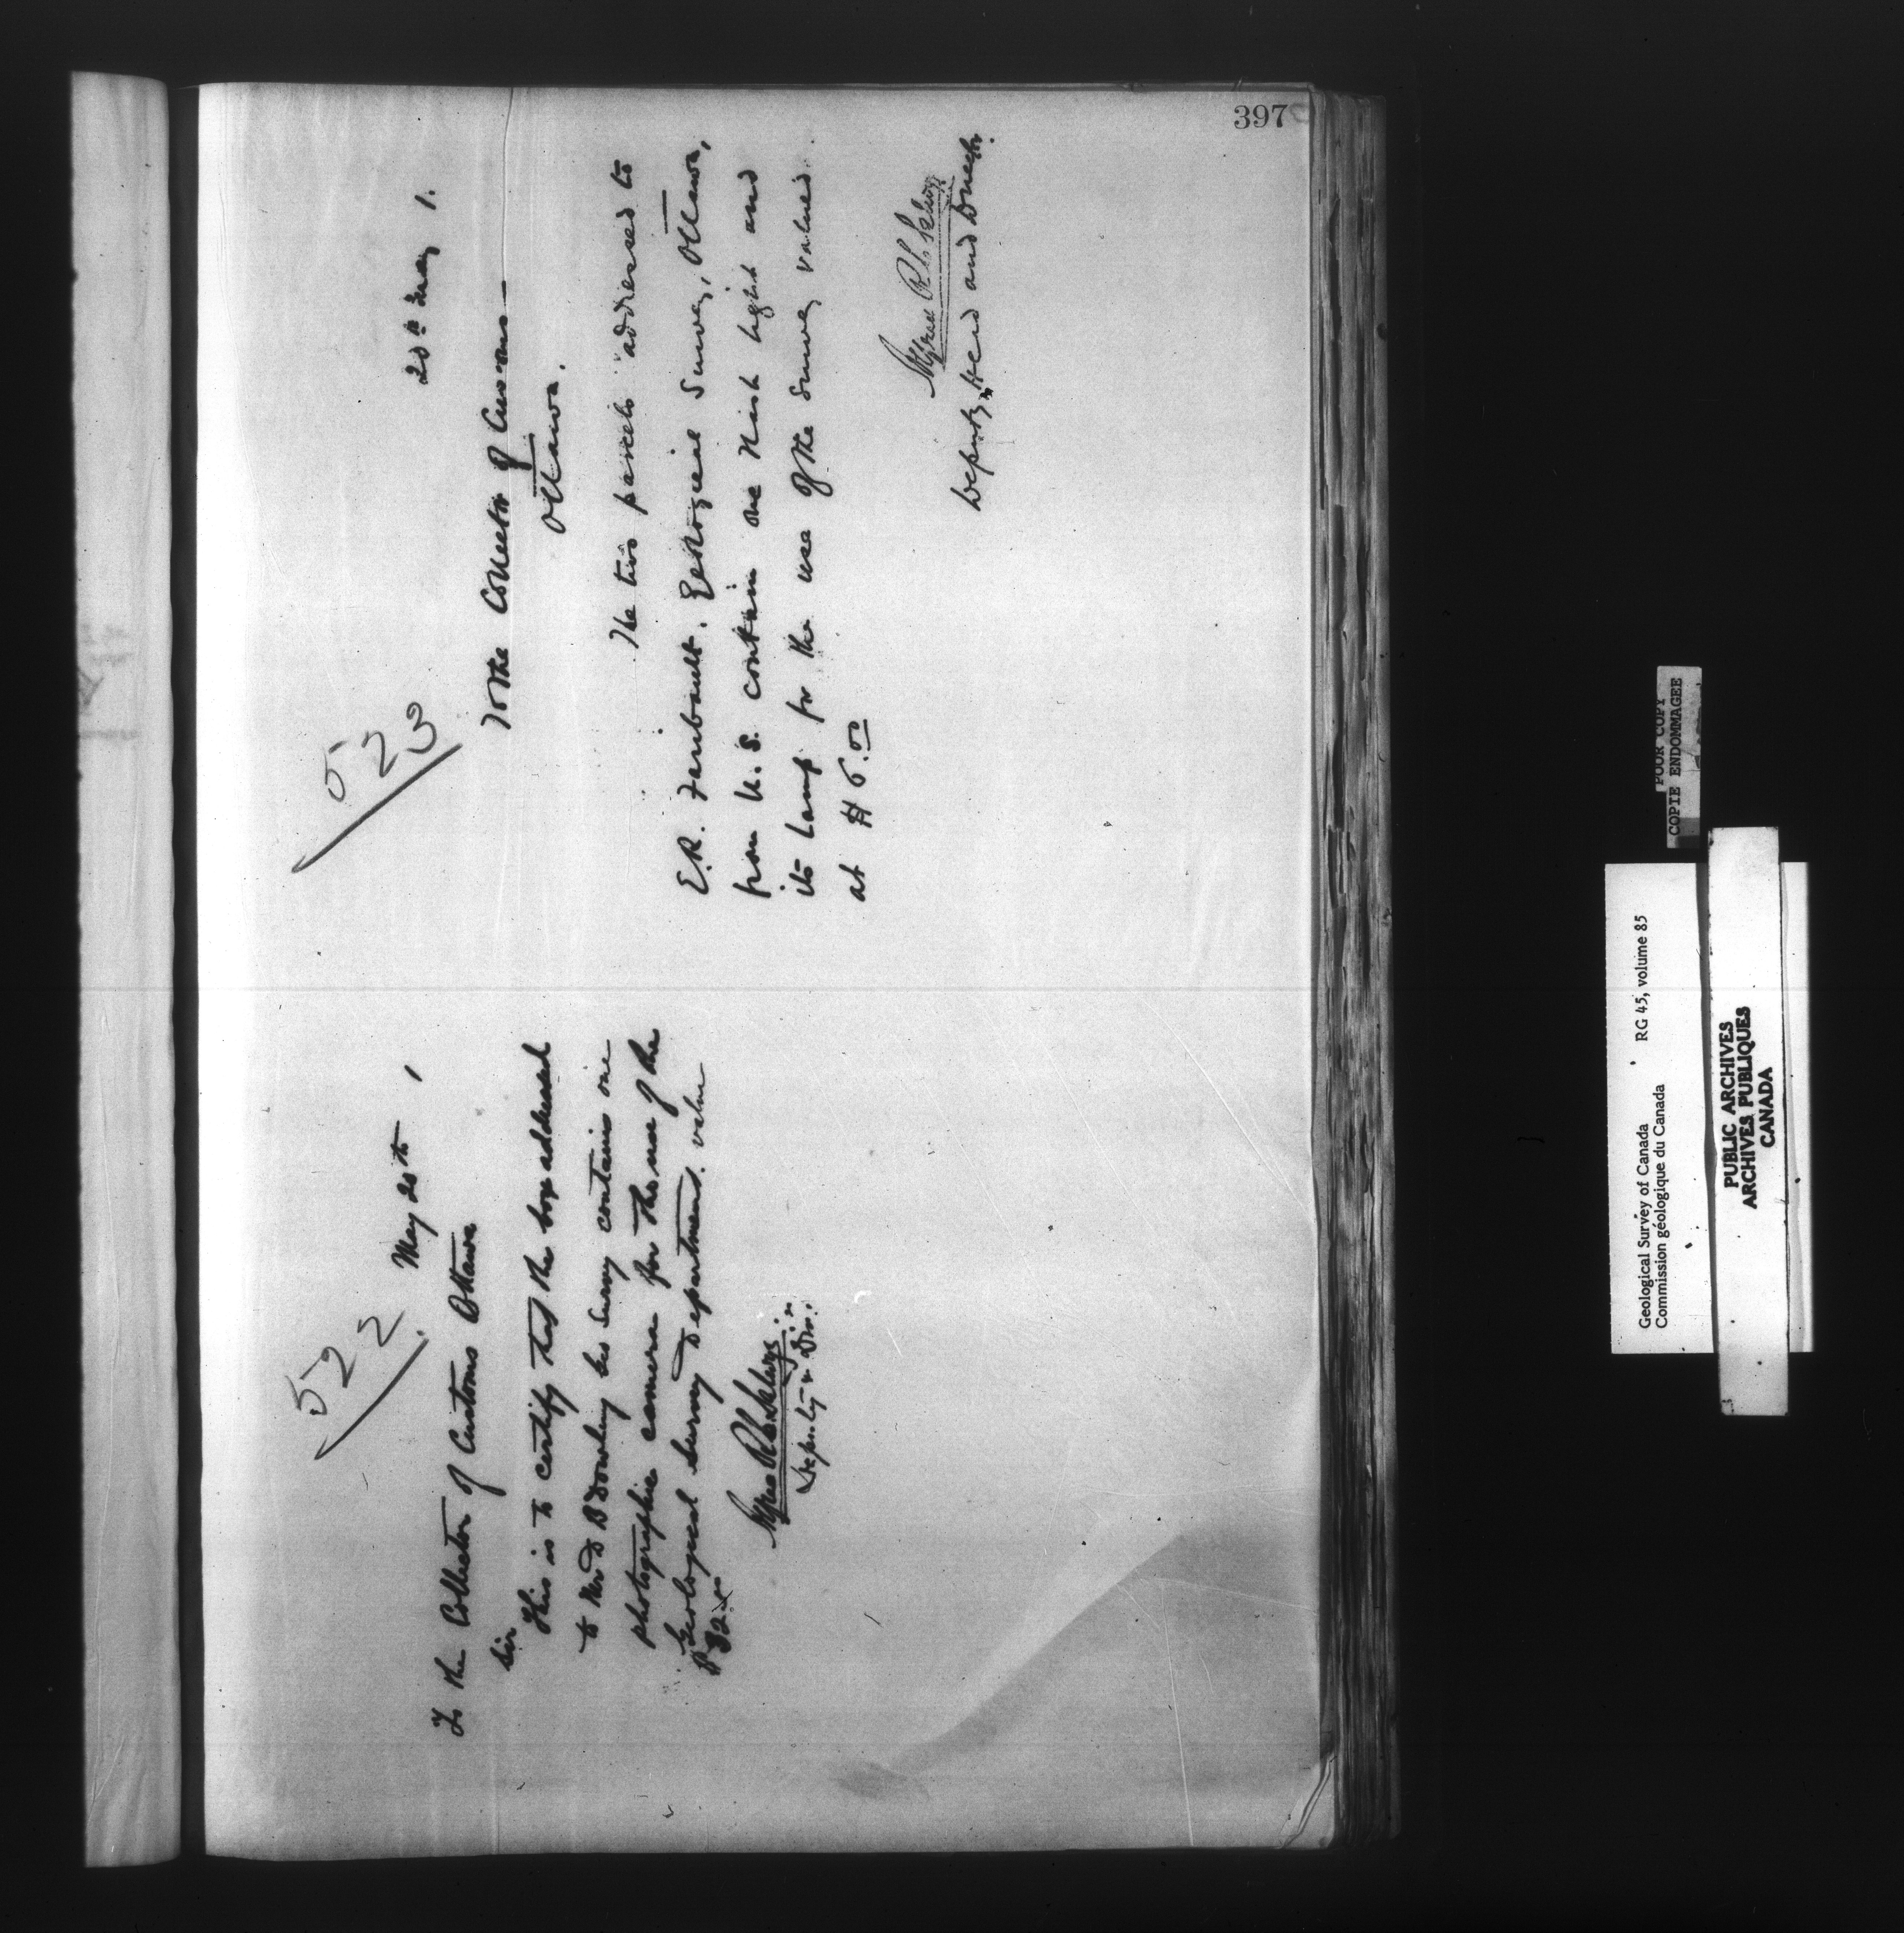 397
522
May 20th 1
To the Collector of Customs Ottawa
Sir
This is to certify that the box addressed
to Mr D B Dowling Geo Survey contains one
photographic camera for the use of the
Geological Survey Department. value
$32.
Alfred R C Selwyn
Deputy Dir.
523
20th May 1.
To the Collector of Customs
Ottawa.
The two parcels addressed to
E.R. Faribault, Geological Survey, Ottawa,
from U.S. contain one flash light and
its lamp for the use of the Survey valued
at $6.00
Alfred R C Selwyn
Deputy Head and Director.
POOR COPY
COPIE ENDOMMAGEE
Geological Survey of Canada RG 45, volume 85
Commission géologique du Canada
PUBLIC ARCHIVES
ARCHIVES PUBLIQUES
CANADA